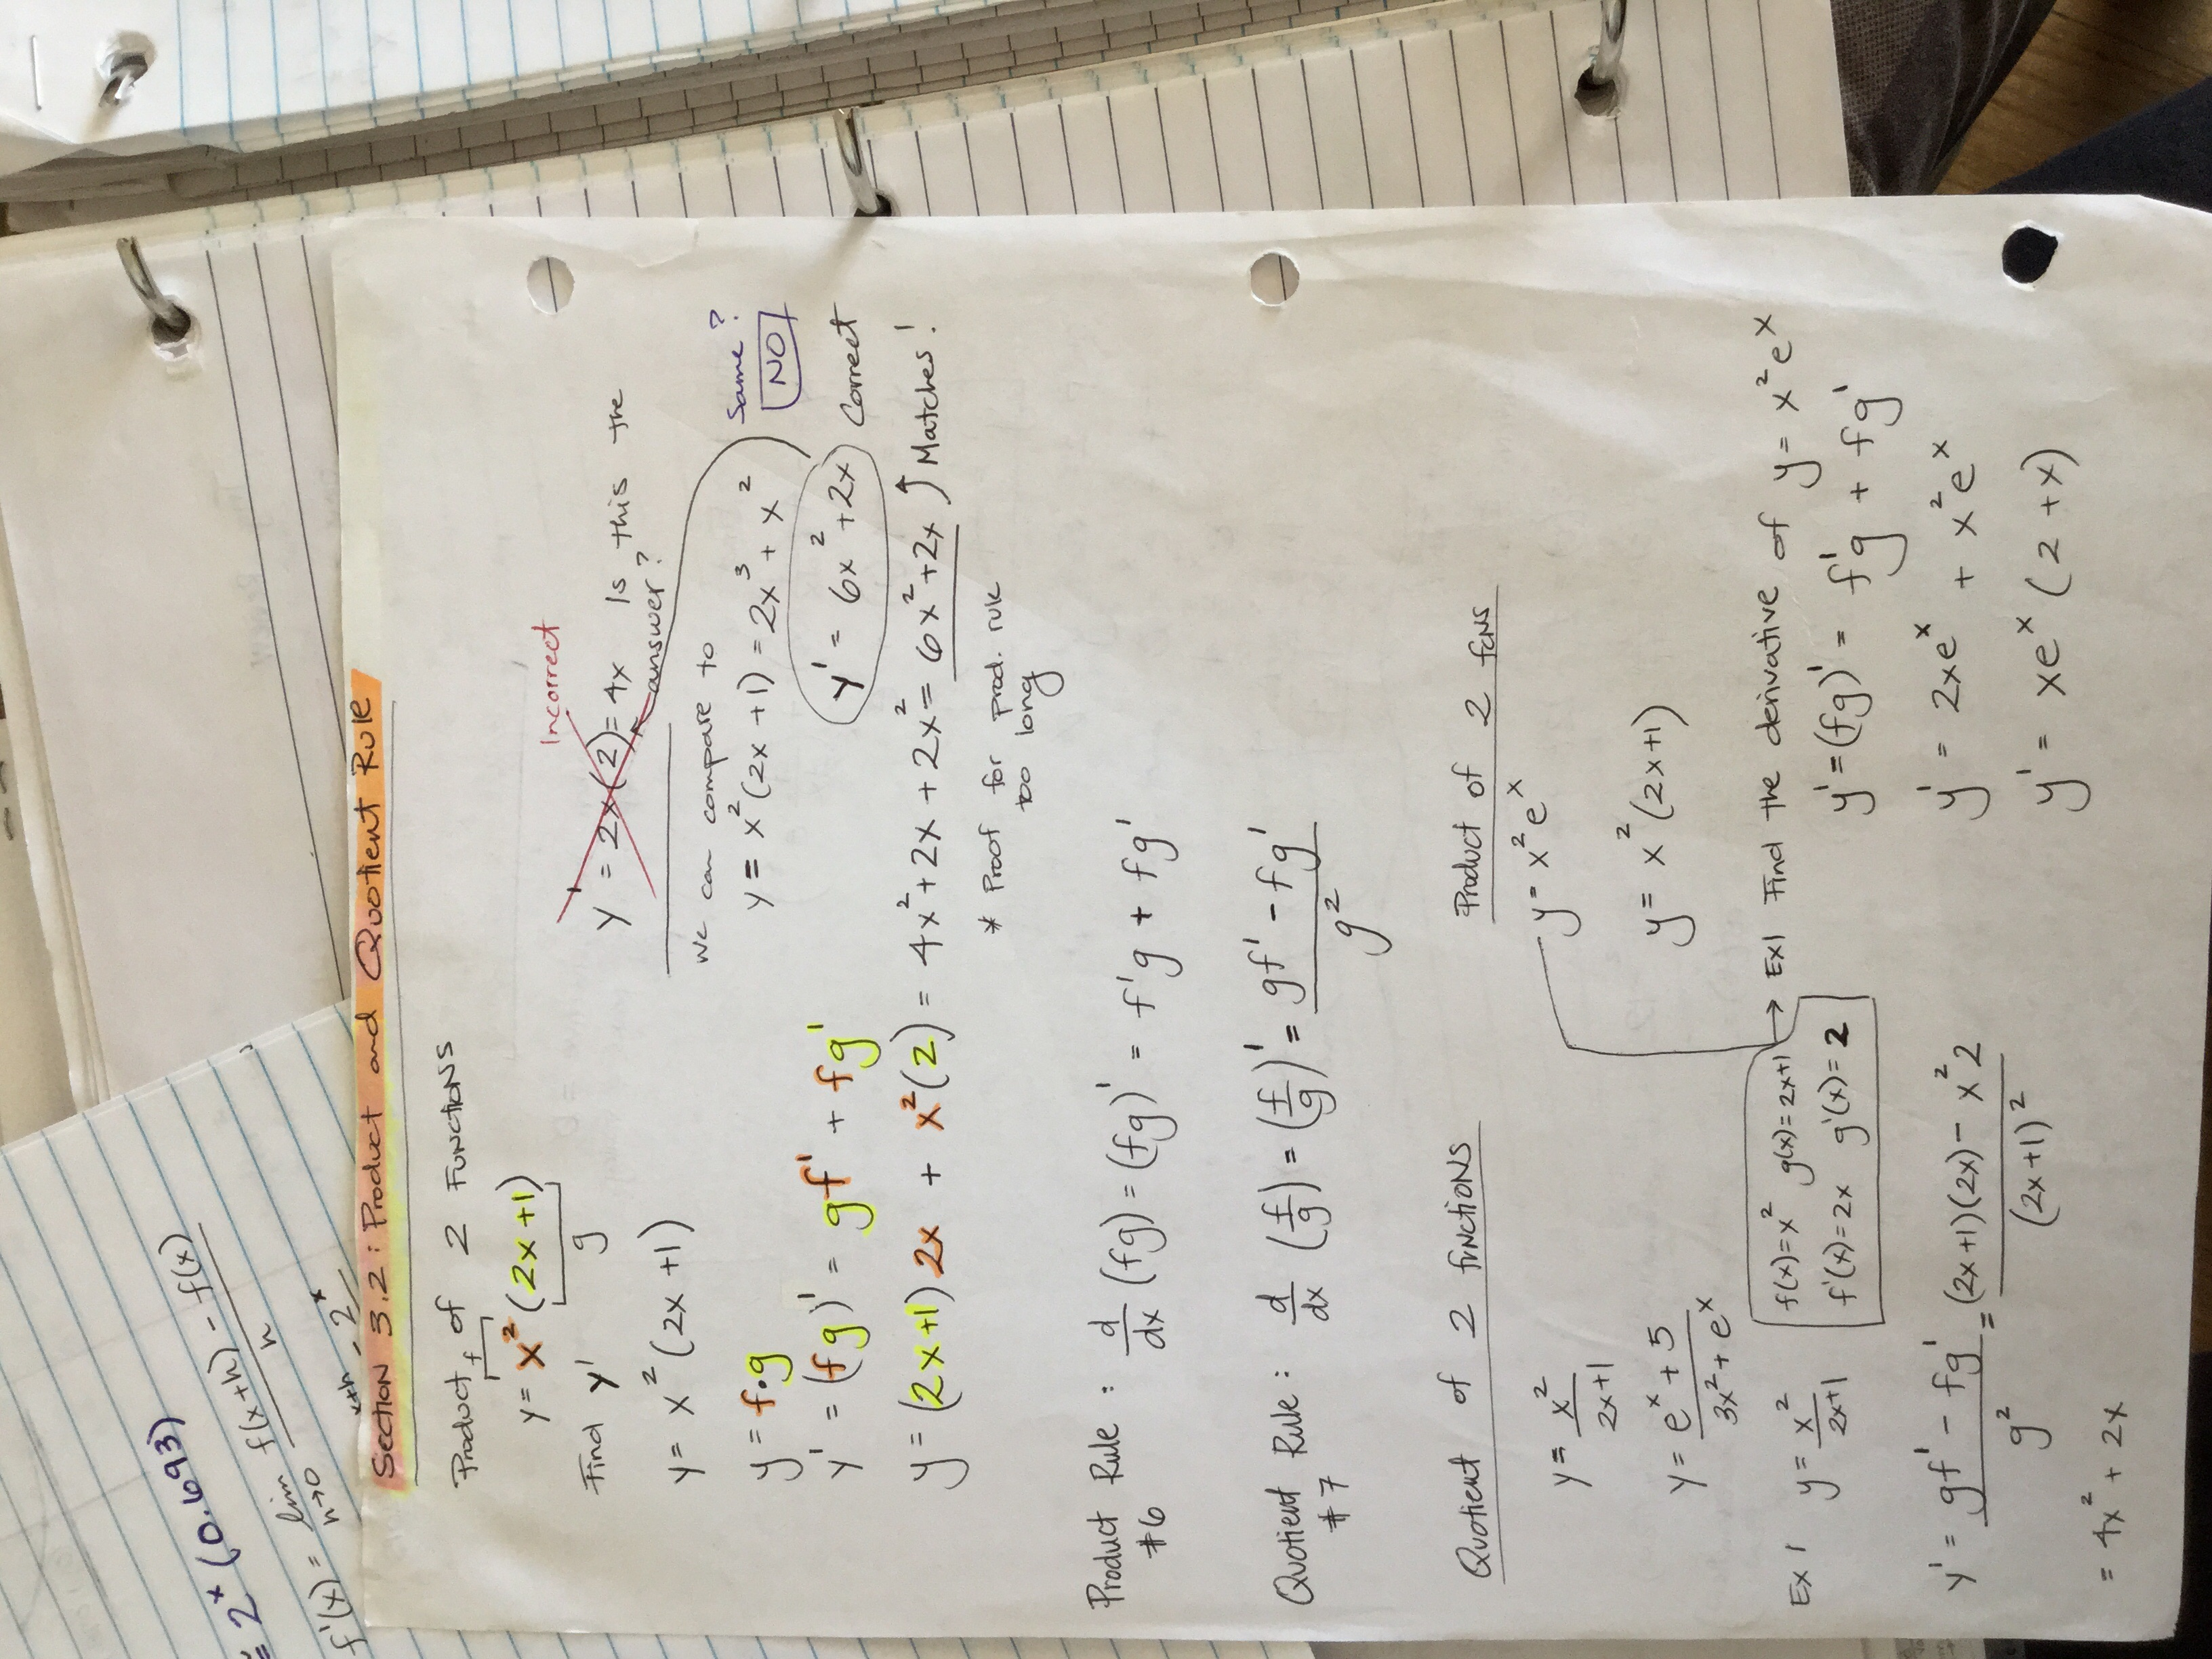 = 2^x (0.693)
f'(x) = lim h→0 f(x+h) - f(x) / h
Section 3.2 : Product and Quotient Rule
Product of 2 Functions
f
y = x² (2x+1)
g
Find y'
y = x² (2x+1)
y = f·g
y' = (fg)' = gf' + fg'
y = (2x+1) 2x + x² (2) = 4x² + 2x + 2x² = 6x² + 2x Matches!
Incorrect
y' = 2x(2) = 4x Is this the
answer?
we can compare to
Same?
NO
y = x² (2x+1) = 2x³ + x²
y' = 6x² + 2x Correct
* Proof for prod. rule
too long
Product Rule : d/dx (fg) = (fg)' = f'g + fg'
#6
Quotient Rule : d/dx (f/g) = (f/g)' = gf' - fg' / g²
#7
Quotient of 2 functions
y = x² / 2x+1
y = e^x + 5 / 3x² + e^x
Product of 2 fcns
y = x² e^x
y = x² (2x+1)
Ex 1 y = x² / 2x+1
f(x) = x² g(x) = 2x+1
f'(x) = 2x g'(x) = 2
y' = gf' - fg' / g² = (2x+1)(2x) - x² 2 / (2x+1)²
= 4x² + 2x
→ Ex1 Find the derivative of y = x² e^x
y' = (fg)' = f'g + fg'
y' = 2xe^x + x² e^x
y' = xe^x (2 + x)